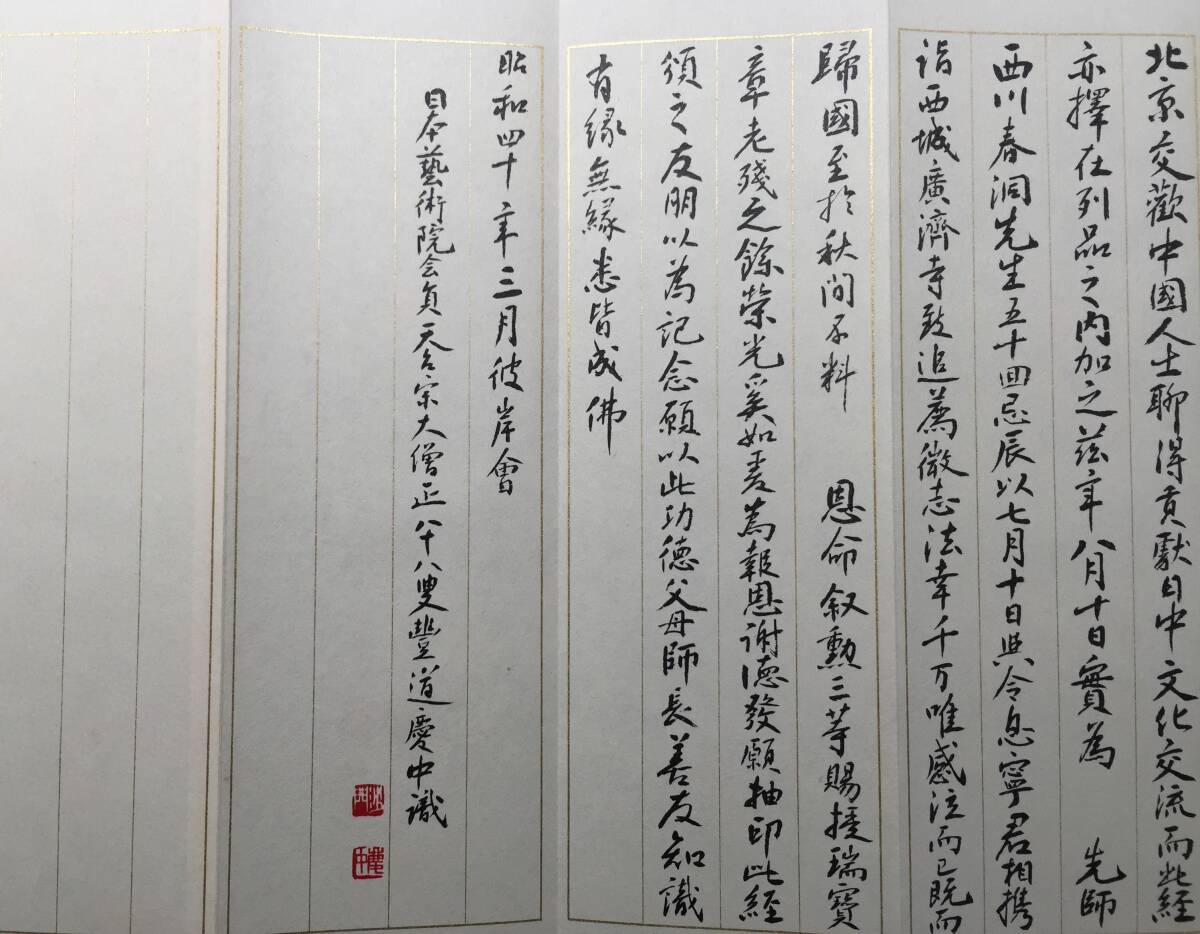 北京交歡中國人士聊得貢獻日中文化交流而此經
亦擇在列品之內加之茲年八月十日實為 先師
西川春洞先生五十回忌辰以七月十日與令息寧君相携
詣西城廣濟寺致追薦微志法幸千万唯感泣而已既而
歸國至於秋間不料 恩命叙勳三等賜授瑞寶
章老殘之餘榮光奚如爰為報恩謝德發願抽印此經
頒之友朋以為記念願以此功德父母師長善友知識
有緣無緣悉皆成佛
昭和四十年三月彼岸會
日本藝術院会員天台宗大僧正八十八叟豐道慶中識
慶中